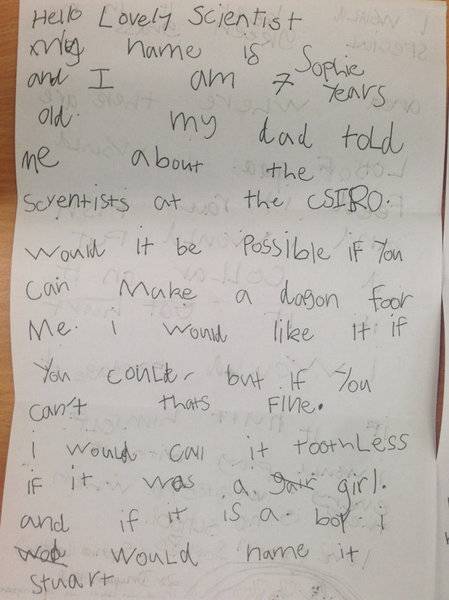 Hello Lovely Scientist
my name is Sophie
and I am 7 years
old. my dad told
me about the
scyentists at the CSIRO.
Would it be possible if you
can make a dagon foor
Me. I would like it if
you could but if you
can't thats fine.
i would call it toothless
if it was a girl.
and if it is a boy i
would name it
Stuart